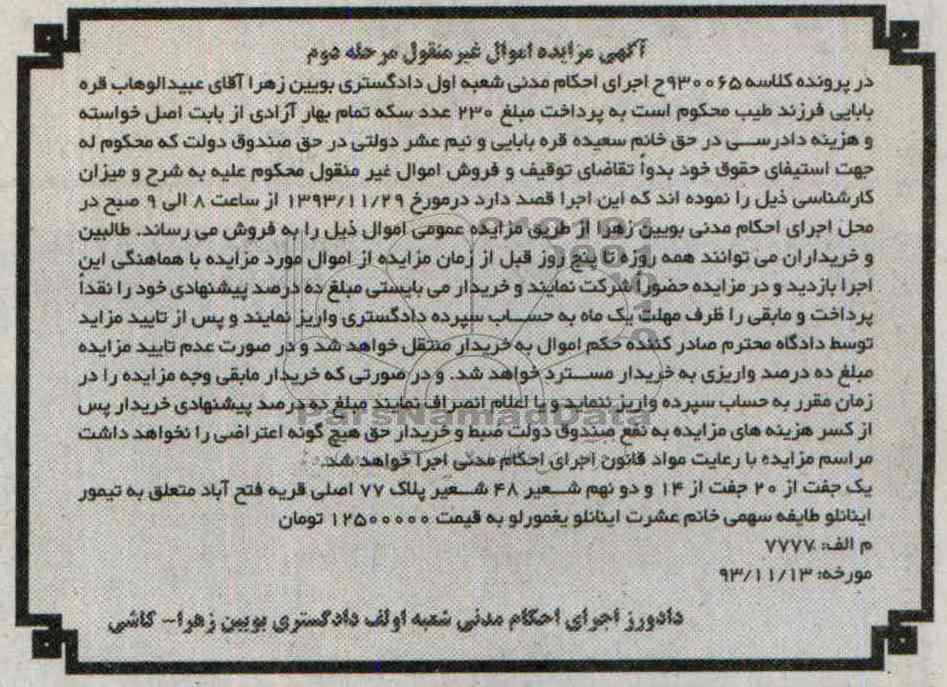 آگهی مزایده اموال غیر منقول مرحله دوم
در پرونده کلاسه ۹۳۰۰۶۵ح اجرای احکام مدنی شعبه اول دادگستری بویین زهرا آقای عبیدالوهاب قره
بابایی فرزند طیب محکوم است به پرداخت مبلغ ۲۳۰ عدد سکه تمام بهار آزادی از بابت اصل خواسته
و هزینه دادرسی در حق خانم سعیده قره بابایی و نیم عشر دولتی در حق صندوق دولت که محکوم له
جهت استیفای حقوق خود بدواً تقاضای توقیف و فروش اموال غیر منقول محکوم علیه به شرح و میزان
کارشناسی ذیل را نموده اند که این اجرا قصد دارد درمورخ ۱۳۹۳/۱۱/۲۹ از ساعت ۸ الی ۹ صبح در
محل اجرای احکام مدنی بویین زهرا از طریق مزایده عمومی اموال ذیل را به فروش می رساند. طالبین
و خریداران می توانند همه روزه تا پنج روز قبل از زمان مزایده از اموال مورد مزایده با هماهنگی این
اجرا بازدید و در مزایده حضوراً شرکت نمایند و خریدار می بایستی مبلغ ده درصد پیشنهادی خود را نقداً
پرداخت و مابقی را ظرف مهلت یک ماه به حساب سپرده دادگستری واریز نمایند و پس از تایید مزاید
توسط دادگاه محترم صادر کننده حکم اموال به خریدار منتقل خواهد شد و در صورت عدم تایید مزایده
مبلغ ده درصد واریزی به خریدار مسترد خواهد شد. و در صورتی که خریدار مابقی وجه مزایده را در
زمان مقرر به حساب سپرده واریز ننماید و یا اعلام انصراف نمایند مبلغ ده درصد پیشنهادی خریدار پس
از کسر هزینه های مزایده به نفع صندوق دولت ضبط و خریدار حق هیچ گونه اعتراضی را نخواهد داشت
مراسم مزایده با رعایت مواد قانون اجرای احکام مدنی اجرا خواهد شد.
یک جفت از ۲۰ جفت از ۱۴ و دو نهم شعیر ۴۸ شعیر پلاک ۷۷ اصلی قریه فتح آباد متعلق به تیمور
اینانلو طایفه سهمی خانم عشرت اینانلو یغمورلو به قیمت ۱۲۵۰۰۰۰۰ تومان
م الف: ۷۷۷۷
مورخه: ۹۳/۱۱/۱۳
دادورز اجرای احکام مدنی شعبه اولف دادگستری بویین زهرا- کاشی
ParsNamadData